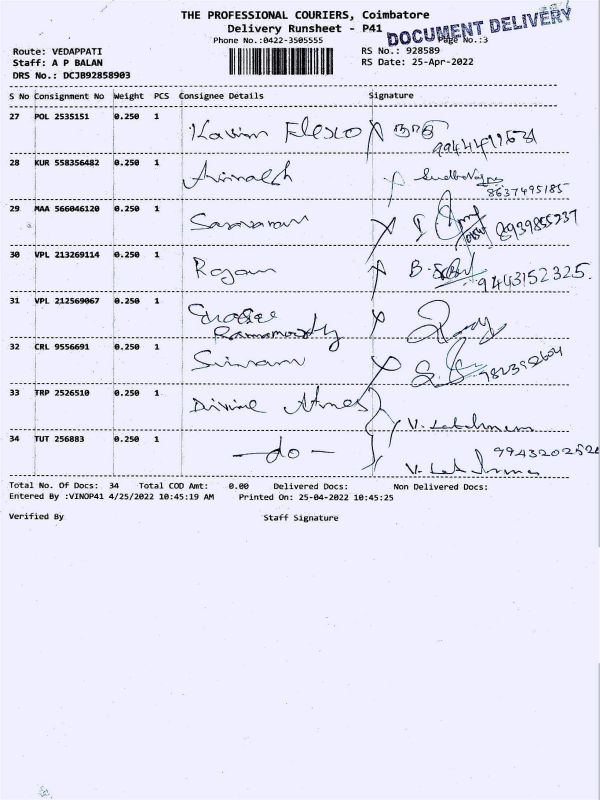 THE PROFESSIONAL COURIERS, Coimbatore
Delivery Runsheet - P41
DOCUMENT DELIVERY
Phone No.:0422-3505555
Page No.:3
Route: VEDAPPATI
RS No.: 928589
Staff: A P BALAN
RS Date: 25-Apr-2022
DRS No.: DCJB92858903
S No Consignment No Weight PCS Consignee Details Signature
27 POL 2535151 0.250 1
28 KUR 558356482 0.250 1 8637495185
29 MAA 566046120 0.250 1 Saravanan 8939855237
30 VPL 213269114 0.250 1 Rajan 9443152325
31 VPL 212569067 0.250 1
Ramamoorthy
32 CRL 9556691 0.250 1 Sriram
33 TRP 2526510 0.250 1 Divine
34 TUT 256883 0.250 1 -do-
Total No. Of Docs: 34 Total COD Amt: 0.00 Delivered Docs: Non Delivered Docs:
Entered By :VINOP41 4/25/2022 10:45:19 AM Printed On: 25-04-2022 10:45:25
Verified By Staff Signature